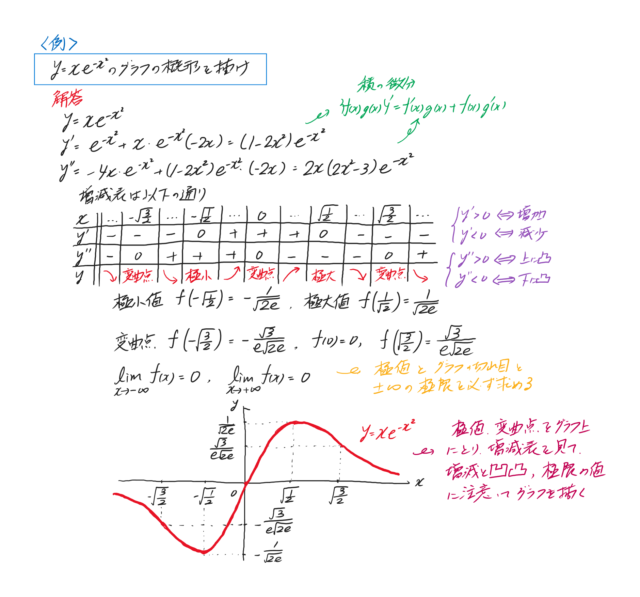 <例>
y=xe^{-x²}のグラフの概形を描け
解答
y=xe^{-x²}
積の微分
{f(x)g(x)}'=f'(x)g(x)+f(x)g'(x)
y'=e^{-x²}+x・e^{-x²}(-2x)=(1-2x²)e^{-x²}
y''=-4x・e^{-x²}+(1-2x²)e^{-x²}・(-2x)=2x(2x²-3)e^{-x²}
増減表は以下の通り
x … -√(3/2) … -√(1/2) … 0 … √(1/2) … √(3/2) …
y' - - - 0 + + + 0 - - -
y'' - 0 + + + 0 - - - 0 +
y ↘ 変曲点 ↘ 極小 ↗ 変曲点 ↗ 極大 ↘ 変曲点 ↘
y'>0 ⇔ 増加
y'<0 ⇔ 減少
y''>0 ⇔ 上に凹
y''<0 ⇔ 下に凸
極小値 f(-√(1/2))=-1/√2e , 極大値 f(√(1/2))=1/√2e
変曲点 f(-√(3/2))=-√3/e√2e , f(0)=0, f(√(3/2))=√3/e√2e
lim_{x→-∞} f(x)=0 , lim_{x→+∞} f(x)=0
極値とグラフの切れ目と
±∞の極限を必ず求める
y
1/√2e
√3/e√2e
y=xe^{-x²}
-√(3/2) -√(1/2) 0 √(1/2) √(3/2) x
-√3/e√2e
-1/√2e
極値、変曲点をグラフ上
にとり、増減表を見て、
増減と凹凸、極限の値
に注意してグラフを描く